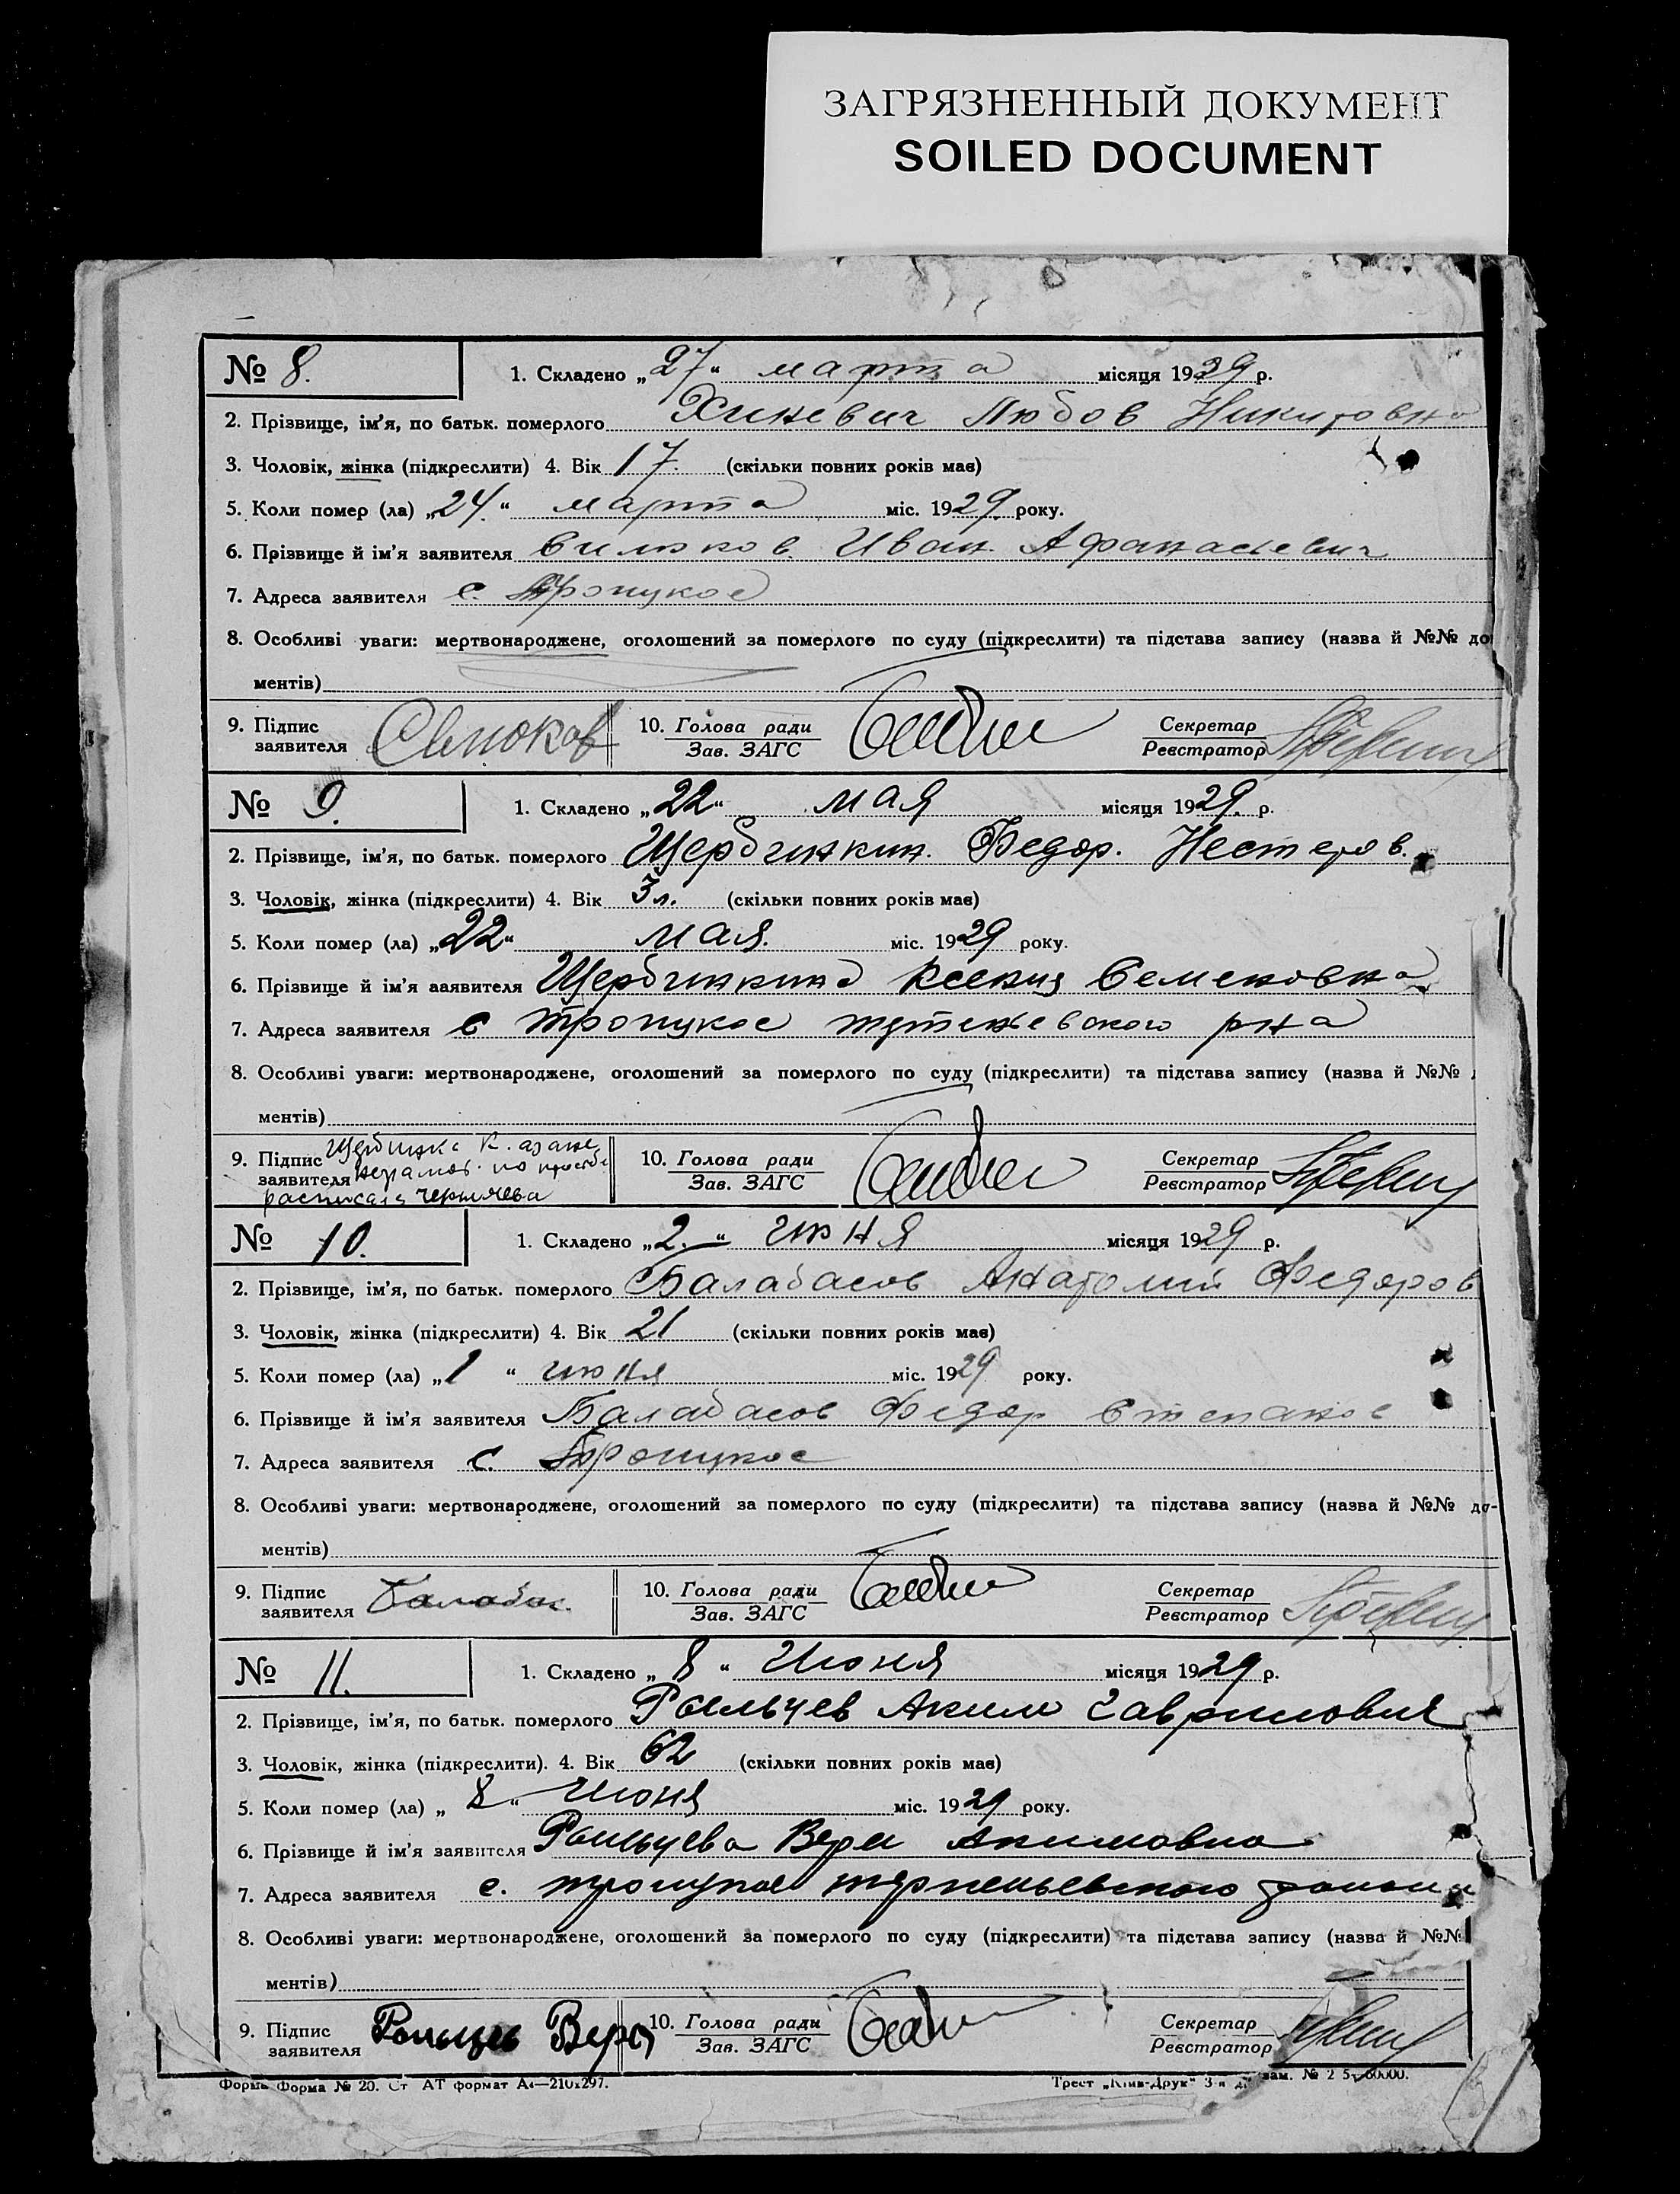 ЗАГРЯЗНЕННЫЙ ДОКУМЕНТ
SOILED DOCUMENT
№ 8. 1. Складено „27“ марта місяця 1929 р.
2. Прізвище, ім’я, по батьк. померлого Хиневич Любов Никитовна
3. Чоловік, жінка (підкреслити) 4. Вік 17. (скільки повних років має)
5. Коли помер (ла) „24.“ марта міс. 1929. року.
6. Прізвище й ім’я заявителя Иван. Афанасьевич
7. Адреса заявителя с. Троицкое
8. Особливі уваги: мертвонароджене, оголошений за померлого по суду (підкреслити) та підстава запису (назва й №№ до
ментів)
9. Підпис 10. Голова ради Секретар
заявителя Зав. ЗАГС Реєстратор
№ 9. 1. Складено „22“ мая місяця 1929. р.
2. Прізвище, ім’я, по батьк. померлого Щербинкин. Федор. Нестеров.
3. Чоловік, жінка (підкреслити) 4. Вік 3 л. (скільки повних років має)
5. Коли помер (ла) „22“ мая. міс. 1929 року.
6. Прізвище й ім’я заявителя Щербинкина Ксения Семеновна
7. Адреса заявителя с Троицкое рна
8. Особливі уваги: мертвонароджене, оголошений за померлого по суду (підкреслити) та підстава запису (назва й №№
ментів)
9. Підпис К. 10. Голова ради Секретар
заявителя по просьбе Зав. ЗАГС Реєстратор
расписалась Черничева
№ 10. 1. Складено „2.“ июня місяця 1929 р.
2. Прізвище, ім’я, по батьк. померлого Балабасов Анатолий Федоров
3. Чоловік, жінка (підкреслити) 4. Вік 21 (скільки повних років має)
5. Коли помер (ла) „1“ июня міс. 1929 року.
6. Прізвище й ім’я заявителя Балабасов Федор Степанов
7. Адреса заявителя с. Троицкое
8. Особливі уваги: мертвонароджене, оголошений за померлого по суду (підкреслити) та підстава запису (назва й №№ до-
ментів)
9. Підпис Балабас. 10. Голова ради Секретар
заявителя Зав. ЗАГС Реєстратор
№ 11. 1. Складено „8“ Июня місяця 1929 р.
2. Прізвище, ім’я, по батьк. померлого Аким Гаврилович
3. Чоловік, жінка (підкреслити). 4. Вік 62 (скільки повних років має)
5. Коли помер (ла) „8“ Июня міс. 1929 року.
6. Прізвище й ім’я заявителя Вера Акимовна
7. Адреса заявителя с. Троицкое терпеньевского района
8. Особливі уваги: мертвонароджене, оголошений за померлого по суду (підкреслити) та підстава запису (назва й №№
ментів)
9. Підпис Вера 10. Голова ради Секретар
заявителя Зав. ЗАГС Реєстратор
Форма № 20. Ст АТ формат А4—210х297. Трест „Київ-Друк“